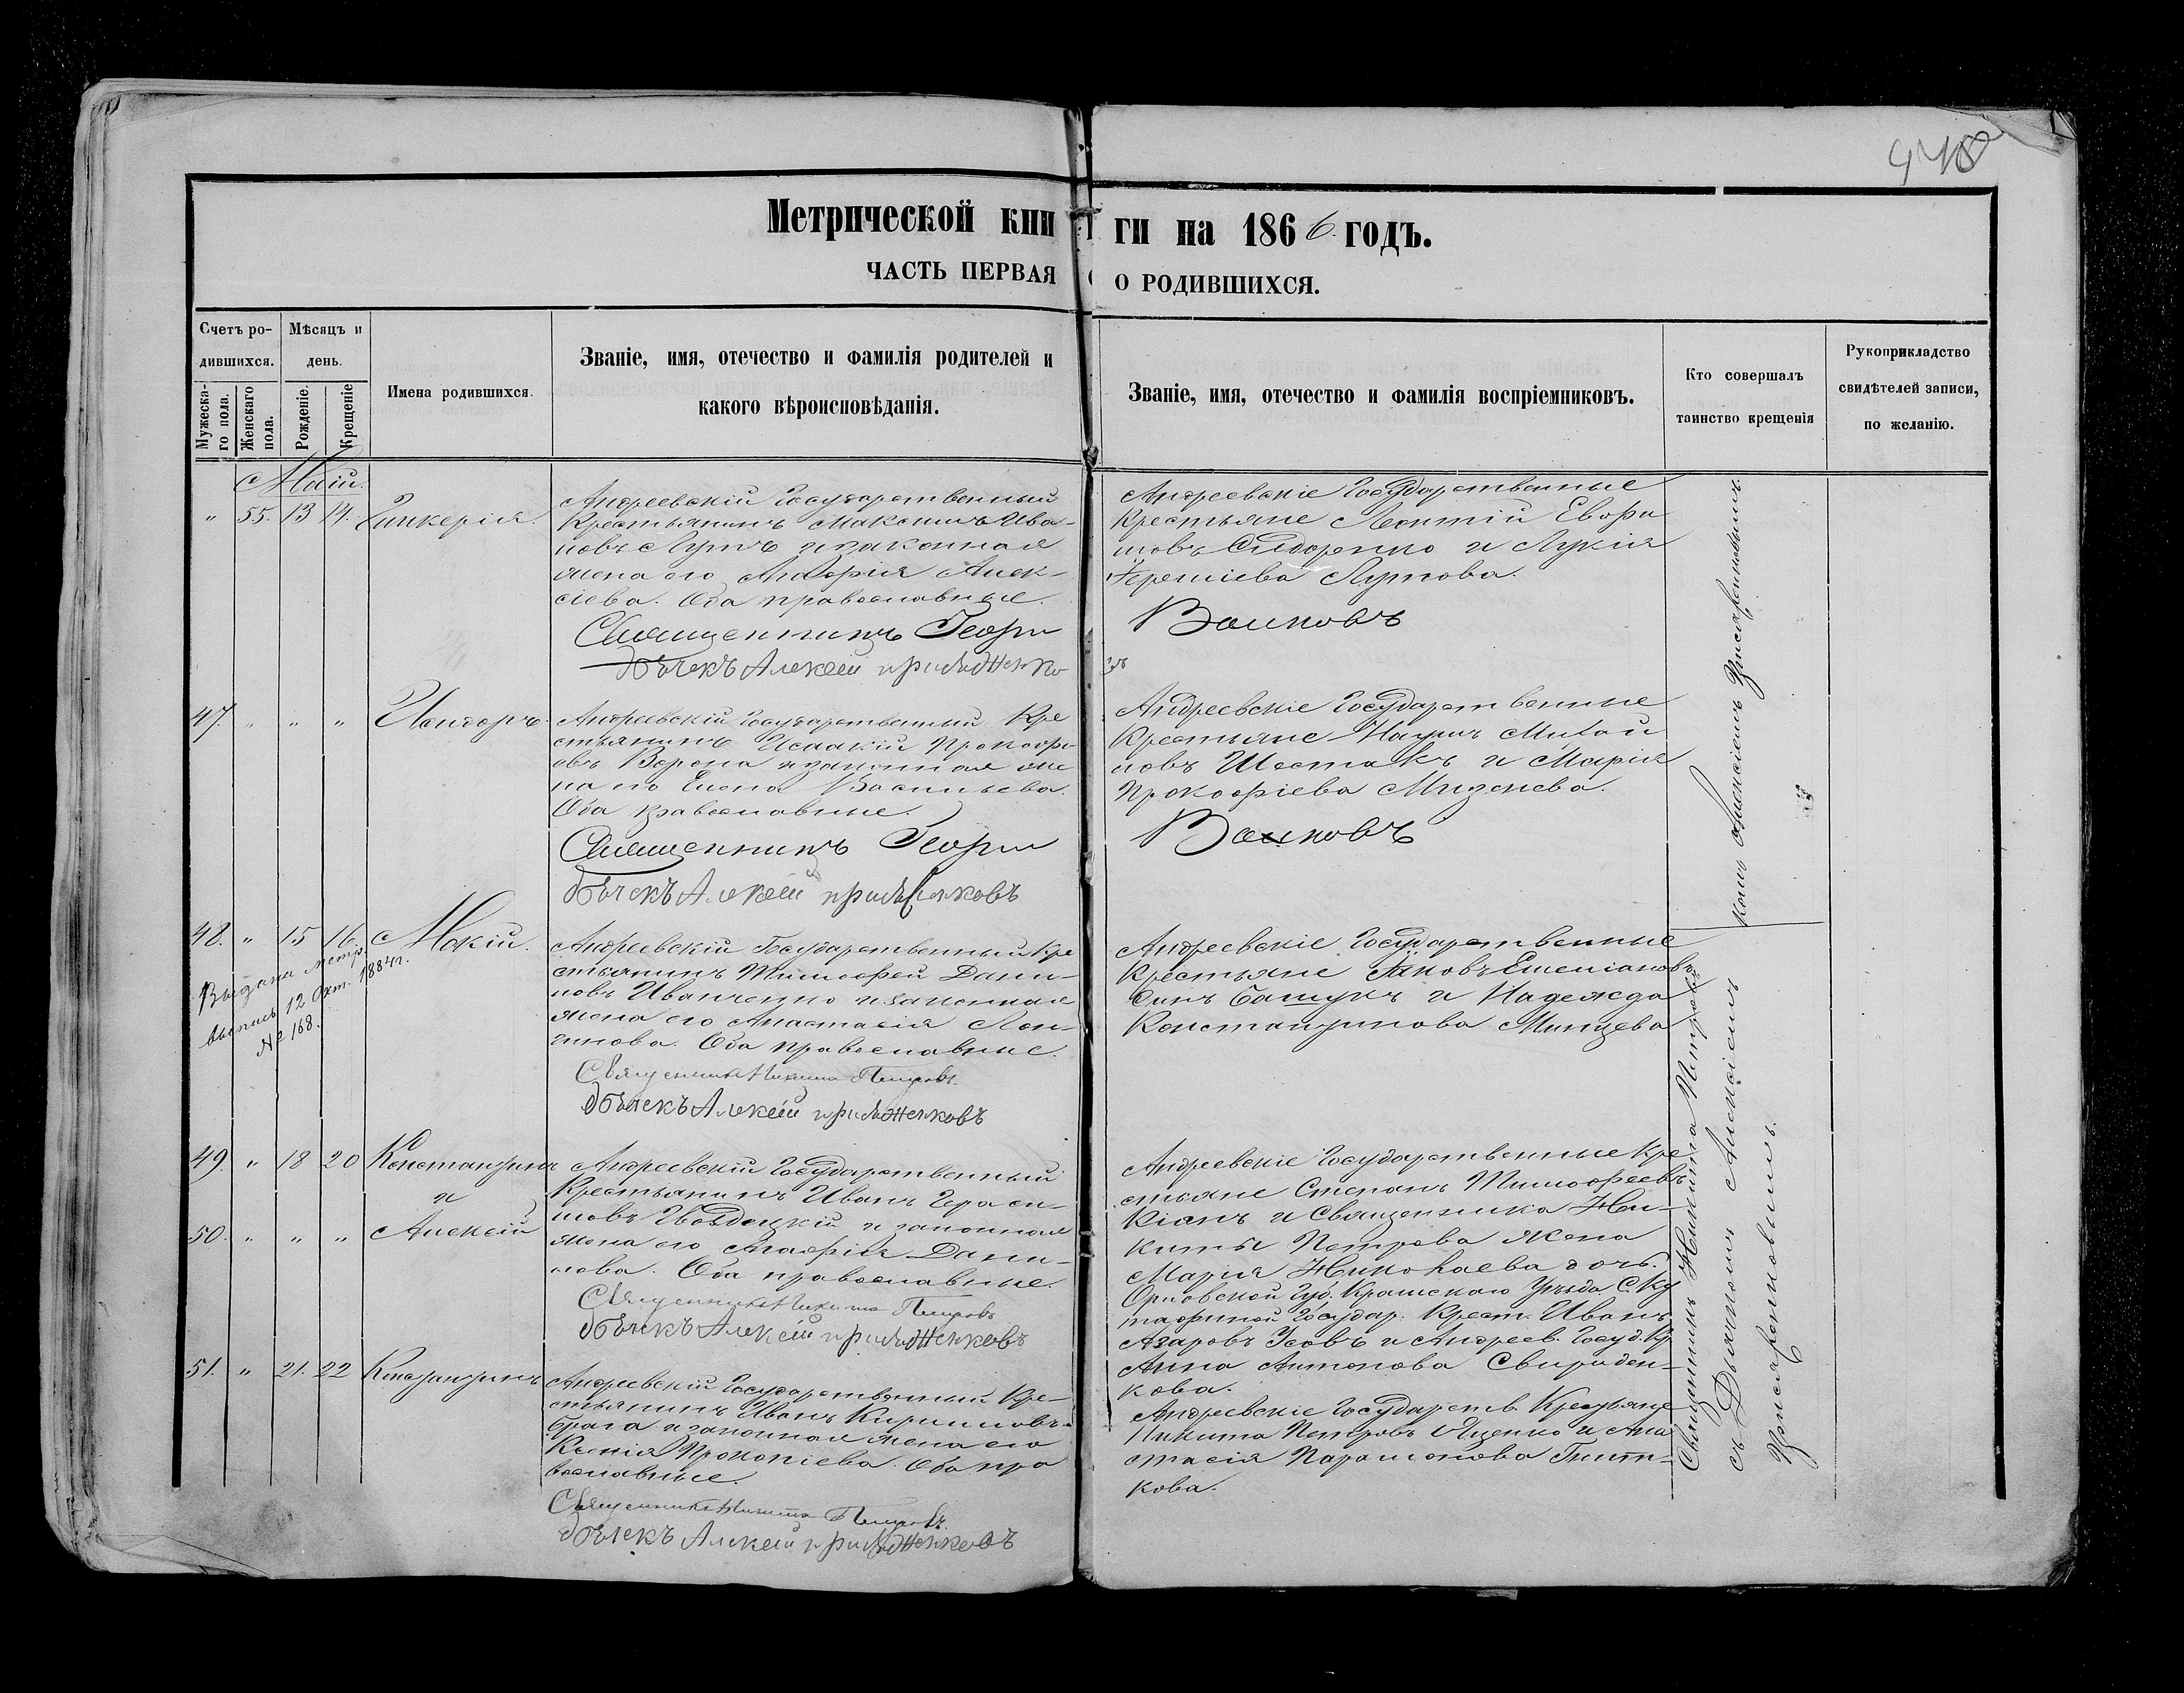 Метрической кни
ги на 1866. годъ.
ЧАСТЬ ПЕРВАЯ
О РОДИВШИХСЯ.
Счетъ ро-
дившихся.
Мужеска-
го пола.
Женскаго
пола.
Мѣсяцъ и
день.
Рожденіе.
Крещеніе
Имена родившихся.
Званіе, имя, отечество и фамилія родителей и
какого вѣроисповѣданія.
Званіе, имя, отечество и фамилія воспріемниковъ.
Кто совершалъ
таинство крещенія
Рукоприкладство
свидѣтелей записи,
по желанію.
Маій.
" 55. 13 14. Гликерія.
Андреевскій Государственный
Крестьянинъ Максимъ Ива-
новъ Лутъ и законная
жена его Агафія Алек-
сіева. Оба православные.
Священникъ Георги
Андреевскіе Государственные
Крестьяне Леонтій Евфи
мовъ Сидоренко и Лукія
Лутова.
Волковъ
47. " " " Исидоръ.
Андреевскій Государственный Кре
стьянинъ Исаакій Прокофі-
евъ Ворона и законная же
на его Елена Васильева.
Оба православные.
Священникъ Георги
Андреевскіе Государственные
Крестьяне Наумъ Михай
ловъ Шестакъ и Марія
Прокофіева Мизенева.
Волковъ
48. " 15 16. Мокій.
Выдана метр.
выпись 12 Окт. 1884 г.
№ 168.
Андреевскій Государственный Кре
стьянинъ Тимофей Дани-
ловъ Иванченко и законная
жена его Анастасія Лон-
гинова. Оба православные.
Священникъ Никита Петровъ.
Андреевскіе Государственные
Крестьяне Іаковъ Емеліановъ
сынъ Башукъ и Надежда
Константинова
49. " 18 20 Константинъ
и
50. " " " Алексій
Андреевскій Государственный
Крестьянинъ Иванъ Гераси-
мовъ Гвоздецкій и законная
жена его Агафія Дани-
лова. Оба православные.
Священникъ Никита Петровъ
Андреевскіе Государственные Кре
стьяне Степанъ Тимофеевъ
Кіянъ и Священника Ни-
киты Петрова жена
Марія Николаева дочь.
Орловской Губ. Уѣзда С. Ку
Государ. Крест. Иванъ
Азаровъ Усовъ и Андреев. Госуд. Кр
Анна Антонова Свириден-
кова.
51. " 21. 22 Константинъ
Андреевскій Государственный Кре-
стьянинъ Иванъ Кирилловъ
и законная жена его
Ксенія Прокопіева. Оба пра
вославные.
Священникъ Никита Петровъ.
Андреевскіе Государств. Крестьяне
Никита Петровъ Ищенко и Ана
стасія Парамонова
кова.
Священникъ Никита Петровъ
съ Дьячкомъ Алексіемъ